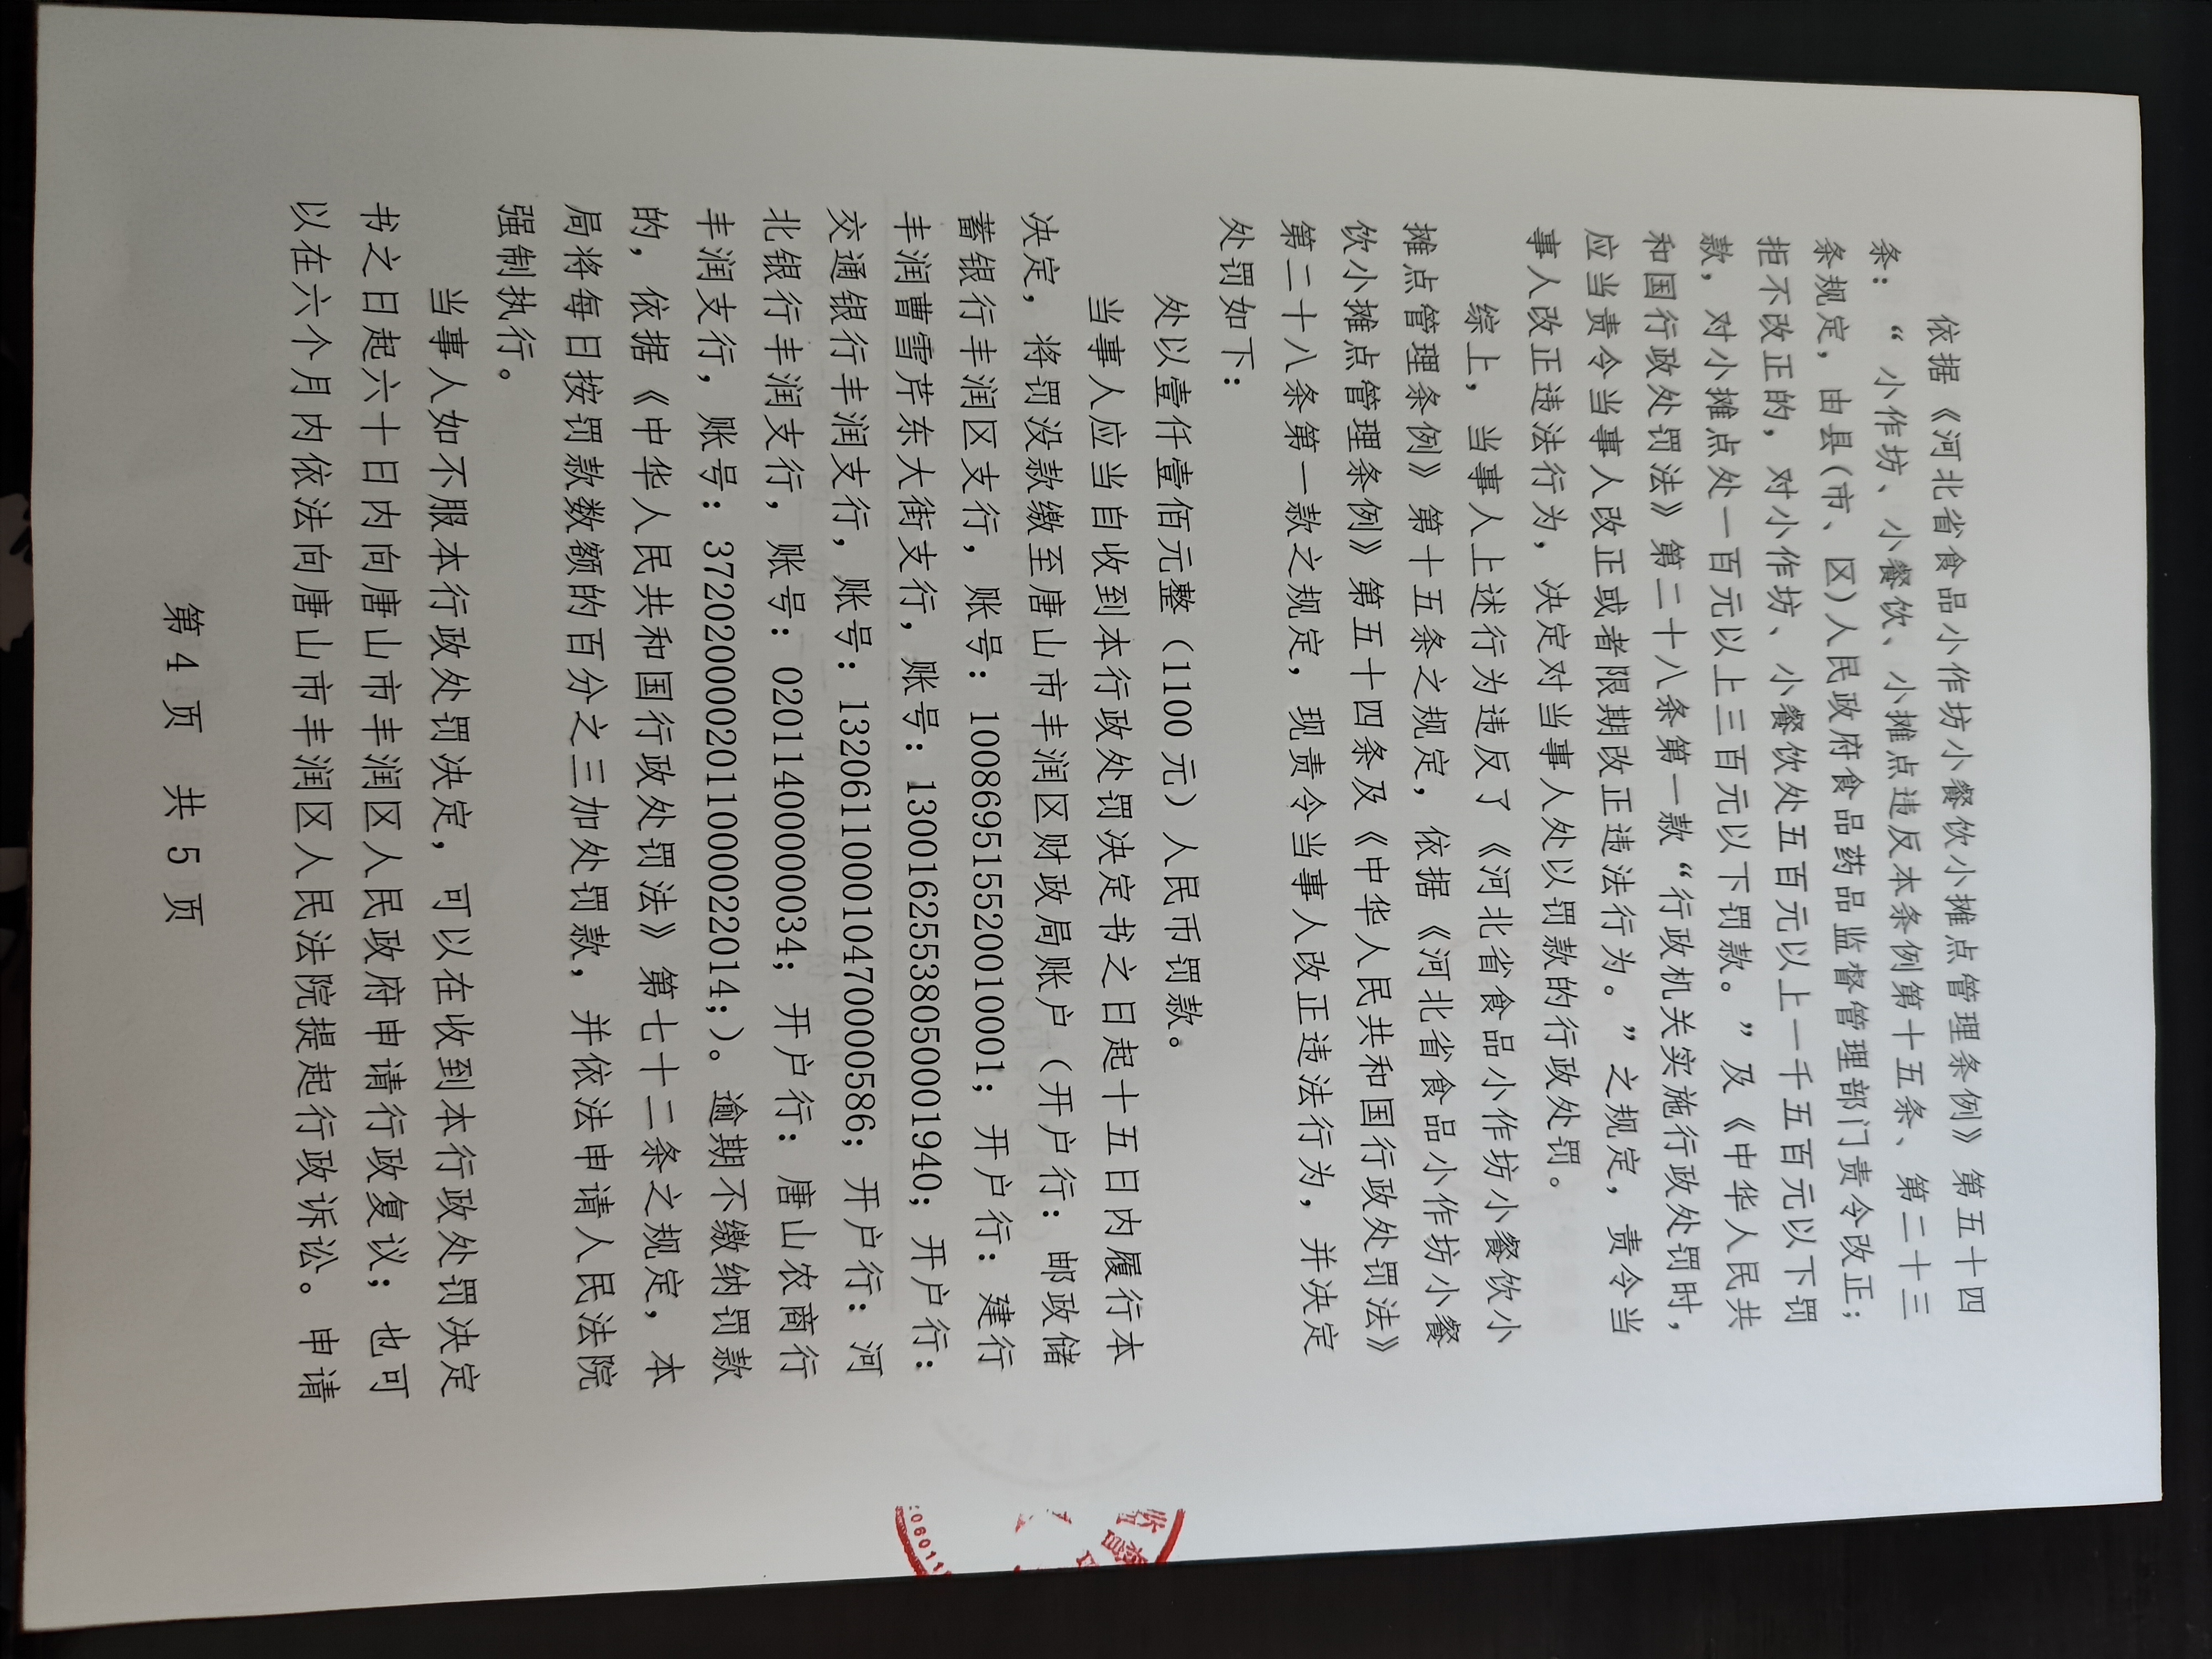 依据《河北省食品小作坊小餐饮小摊点管理条例》第五十四
条：“小作坊、小餐饮、小摊点违反本条例第十五条、第二十三
条规定，由县(市、区)人民政府食品药品监督管理部门责令改正；
拒不改正的，对小作坊、小餐饮处五百元以上一千五百元以下罚
款，对小摊点处一百元以上三百元以下罚款。”及《中华人民共
和国行政处罚法》第二十八条第一款“行政机关实施行政处罚时，
应当责令当事人改正或者限期改正违法行为。”之规定，责令当
事人改正违法行为，决定对当事人处以罚款的行政处罚。
综上，当事人上述行为违反了《河北省食品小作坊小餐饮小
摊点管理条例》第十五条之规定，依据《河北省食品小作坊小餐
饮小摊点管理条例》第五十四条及《中华人民共和国行政处罚法》
第二十八条第一款之规定，现责令当事人改正违法行为，并决定
处罚如下：
处以壹仟壹佰元整（1100元）人民币罚款。
当事人应当自收到本行政处罚决定书之日起十五日内履行本
决定，将罚没款缴至唐山市丰润区财政局账户（开户行：邮政储
蓄银行丰润区支行，账号：100869515520010001；开户行：建行
丰润曹雪芹东大街支行，账号：13001625538050001940；开户行：
交通银行丰润支行，账号：132061100010470000586；开户行：河
北银行丰润支行，账号：02011400000034；开户行：唐山农商行
丰润支行，账号：372020000201100022014；）。逾期不缴纳罚款
的，依据《中华人民共和国行政处罚法》第七十二条之规定，本
局将每日按罚款数额的百分之三加处罚款，并依法申请人民法院
强制执行。
当事人如不服本行政处罚决定，可以在收到本行政处罚决定
书之日起六十日内向唐山市丰润区人民政府申请行政复议；也可
以在六个月内依法向唐山市丰润区人民法院提起行政诉讼。申请
第4页 共5页